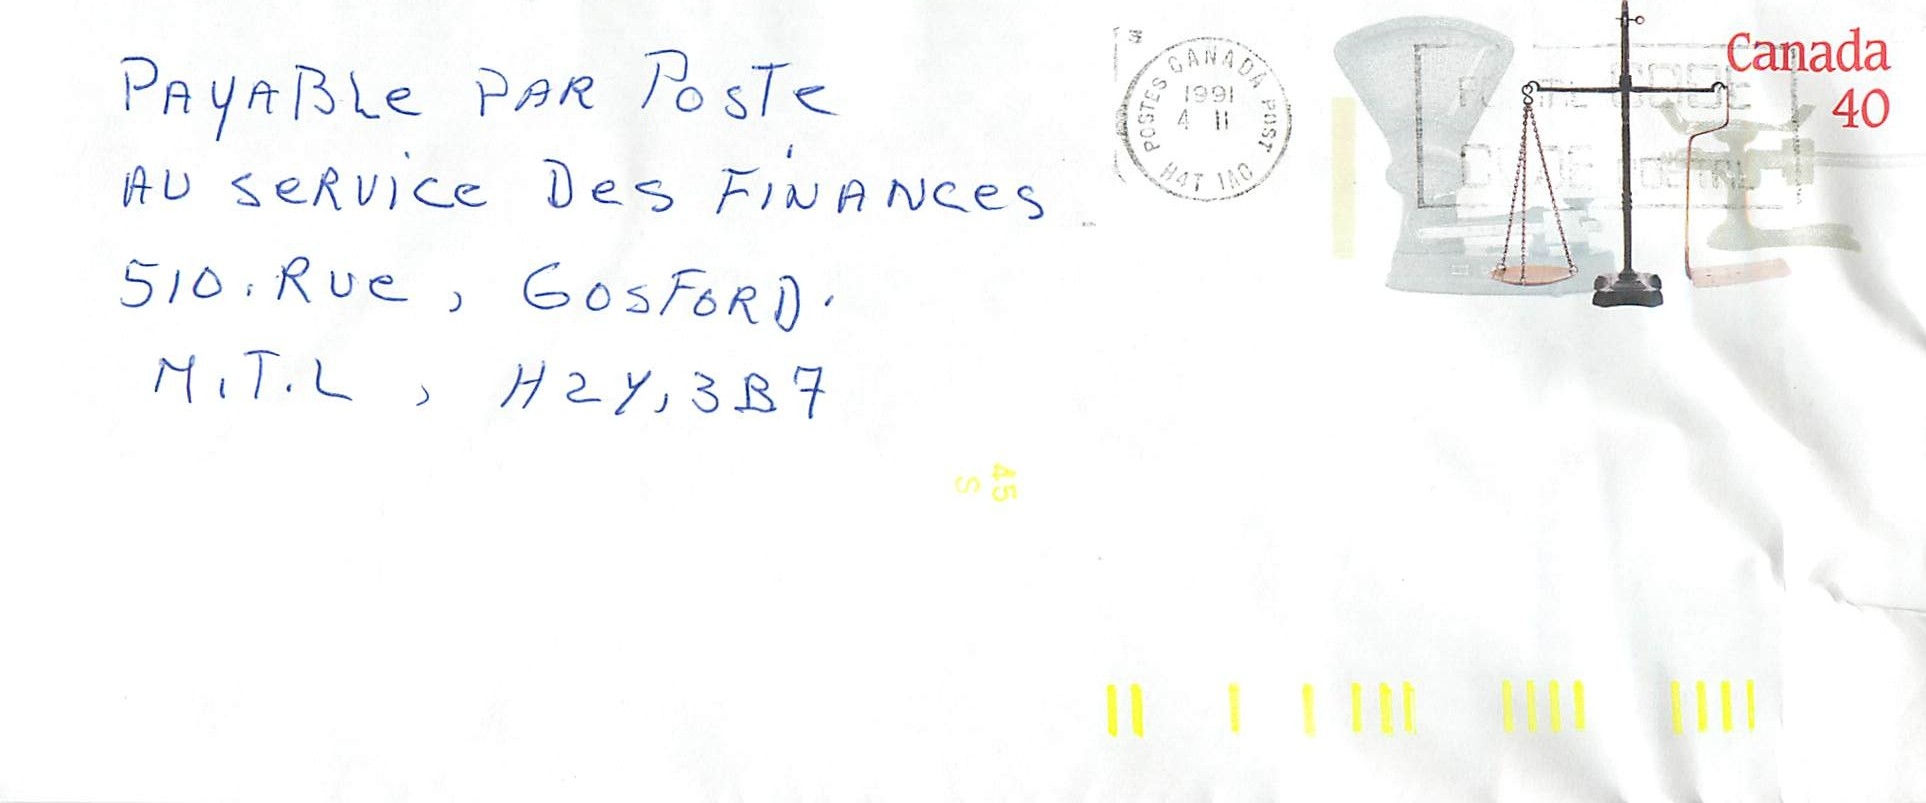 PAYABLe PAR PosTe
AU SeRVice Des FiNANces
510. Rue, GosFoRD.
M.T.L, H2Y, 3B7
POSTES CANADA POST
1991
4 11
H4T 1A0
Canada
40
POSTAL CODE
CODE POSTAL
45
S